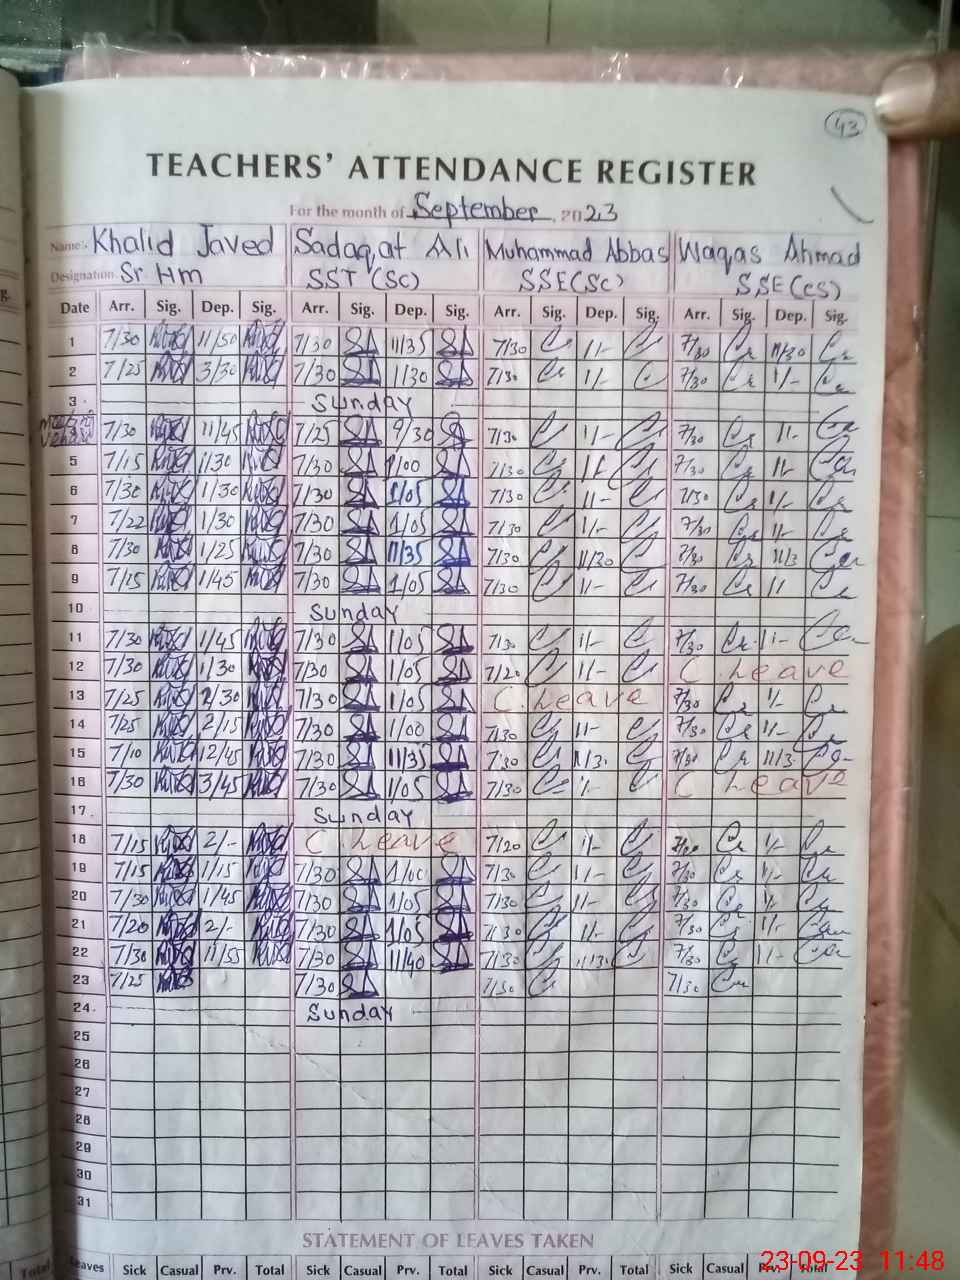 43
TEACHERS' ATTENDANCE REGISTER
For the month of September, 2023
Name:- Khalid Javed Sadaqat Ali Muhammad Abbas Waqas Ahmad
Designation Sr Hm SST (Sc) SSE(Sc) SSE(cs)
Date Arr. Sig. Dep. Sig. Arr. Sig. Dep. Sig. Arr. Sig. Dep. Sig. Arr. Sig. Dep. Sig.
1 7/30 11/50 7/30 11/35 7/30 1/- 7/30 11/30
2 7/25 3/30 7/30 1/30 7/30 1/- 7/30 1/-
3 Sunday
7/30 11/45 7/25 9/30 7/30 1/- 7/30 1/-
5 7/15 1/30 7/30 1/00 7/30 1/- 7/30 1/-
6 7/30 1/30 7/30 1/05 7/30 1/- 7/30 1/-
7 7/22 1/30 7/30 1/05 7/30 1/- 7/30 1/-
8 7/30 1/25 7/30 11/35 7/30 11/30 7/30 11/3
9 7/15 1/45 7/30 1/05 7/30 1/- 7/30
10 Sunday
11 7/30 1/45 7/30 1/05 7/30 1/- 7/30 1/-
12 7/30 1/30 7/30 1/05 7/20 1/- C. Leave
13 7/25 2/30 7/30 1/05 C. Leave 7/30 1/-
14 7/25 2/15 7/30 1/00 7/30 1/- 7/30 1/-
15 7/10 12/45 7/30 11/35 7/30 11/3. 7/30 11/3.
16 7/30 3/45 7/30 1/05 7/30 1/- C. Leave
17 Sunday
18 7/15 2/- C. Leave 7/20 1/- 1/-
19 7/15 1/15 7/30 1/00 7/30 1/- 7/30 1/-
20 7/30 1/45 7/30 1/05 7/30 1/- 7/30 1/-
21 7/20 2/- 7/30 1/05 7/30 1/- 7/30 1/-
22 7/30 11/55 7/30 11/40 7/30 11/30 7/30 1/-
23 7/25 7/30 7/30 7/30
24 Sunday
25
26
27
28
29
30
31
STATEMENT OF LEAVES TAKEN
Leaves Sick Casual Prv. Total Sick Casual Prv. Total Sick Casual Prv. Total Sick Casual Prv. Total
Total
23-09-23 11:48